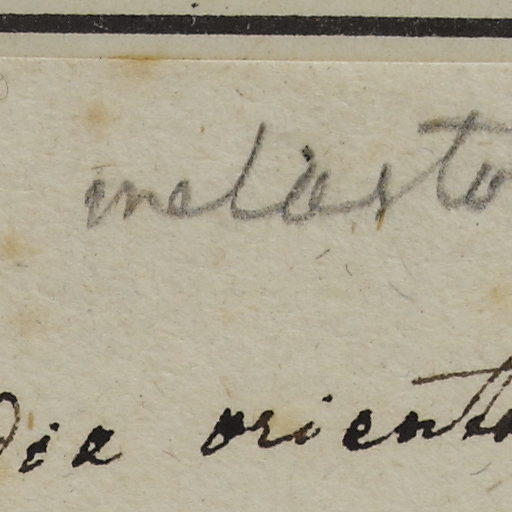 melasto
dia orienta